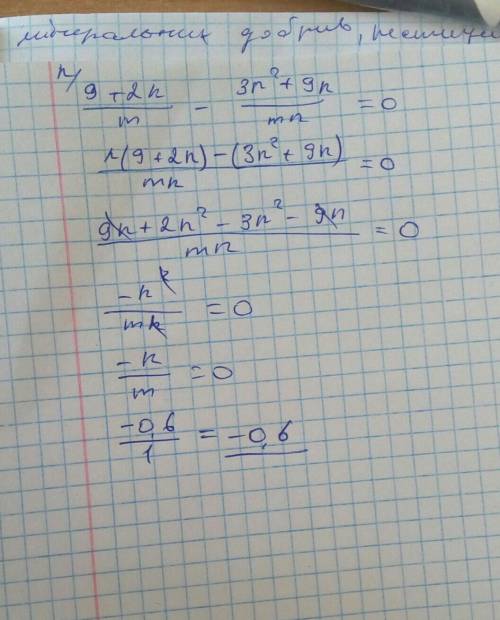 мінеральних добрив,
n/
(9 + 2n)/m - (3n² + 9n)/(mn) = 0
(n(9 + 2n) - (3n² + 9n))/(mn) = 0
(9n + 2n² - 3n² - 9n)/(mn) = 0
(-n²)/(mn) = 0
(-n)/m = 0
(-0,6)/1 = -0,6